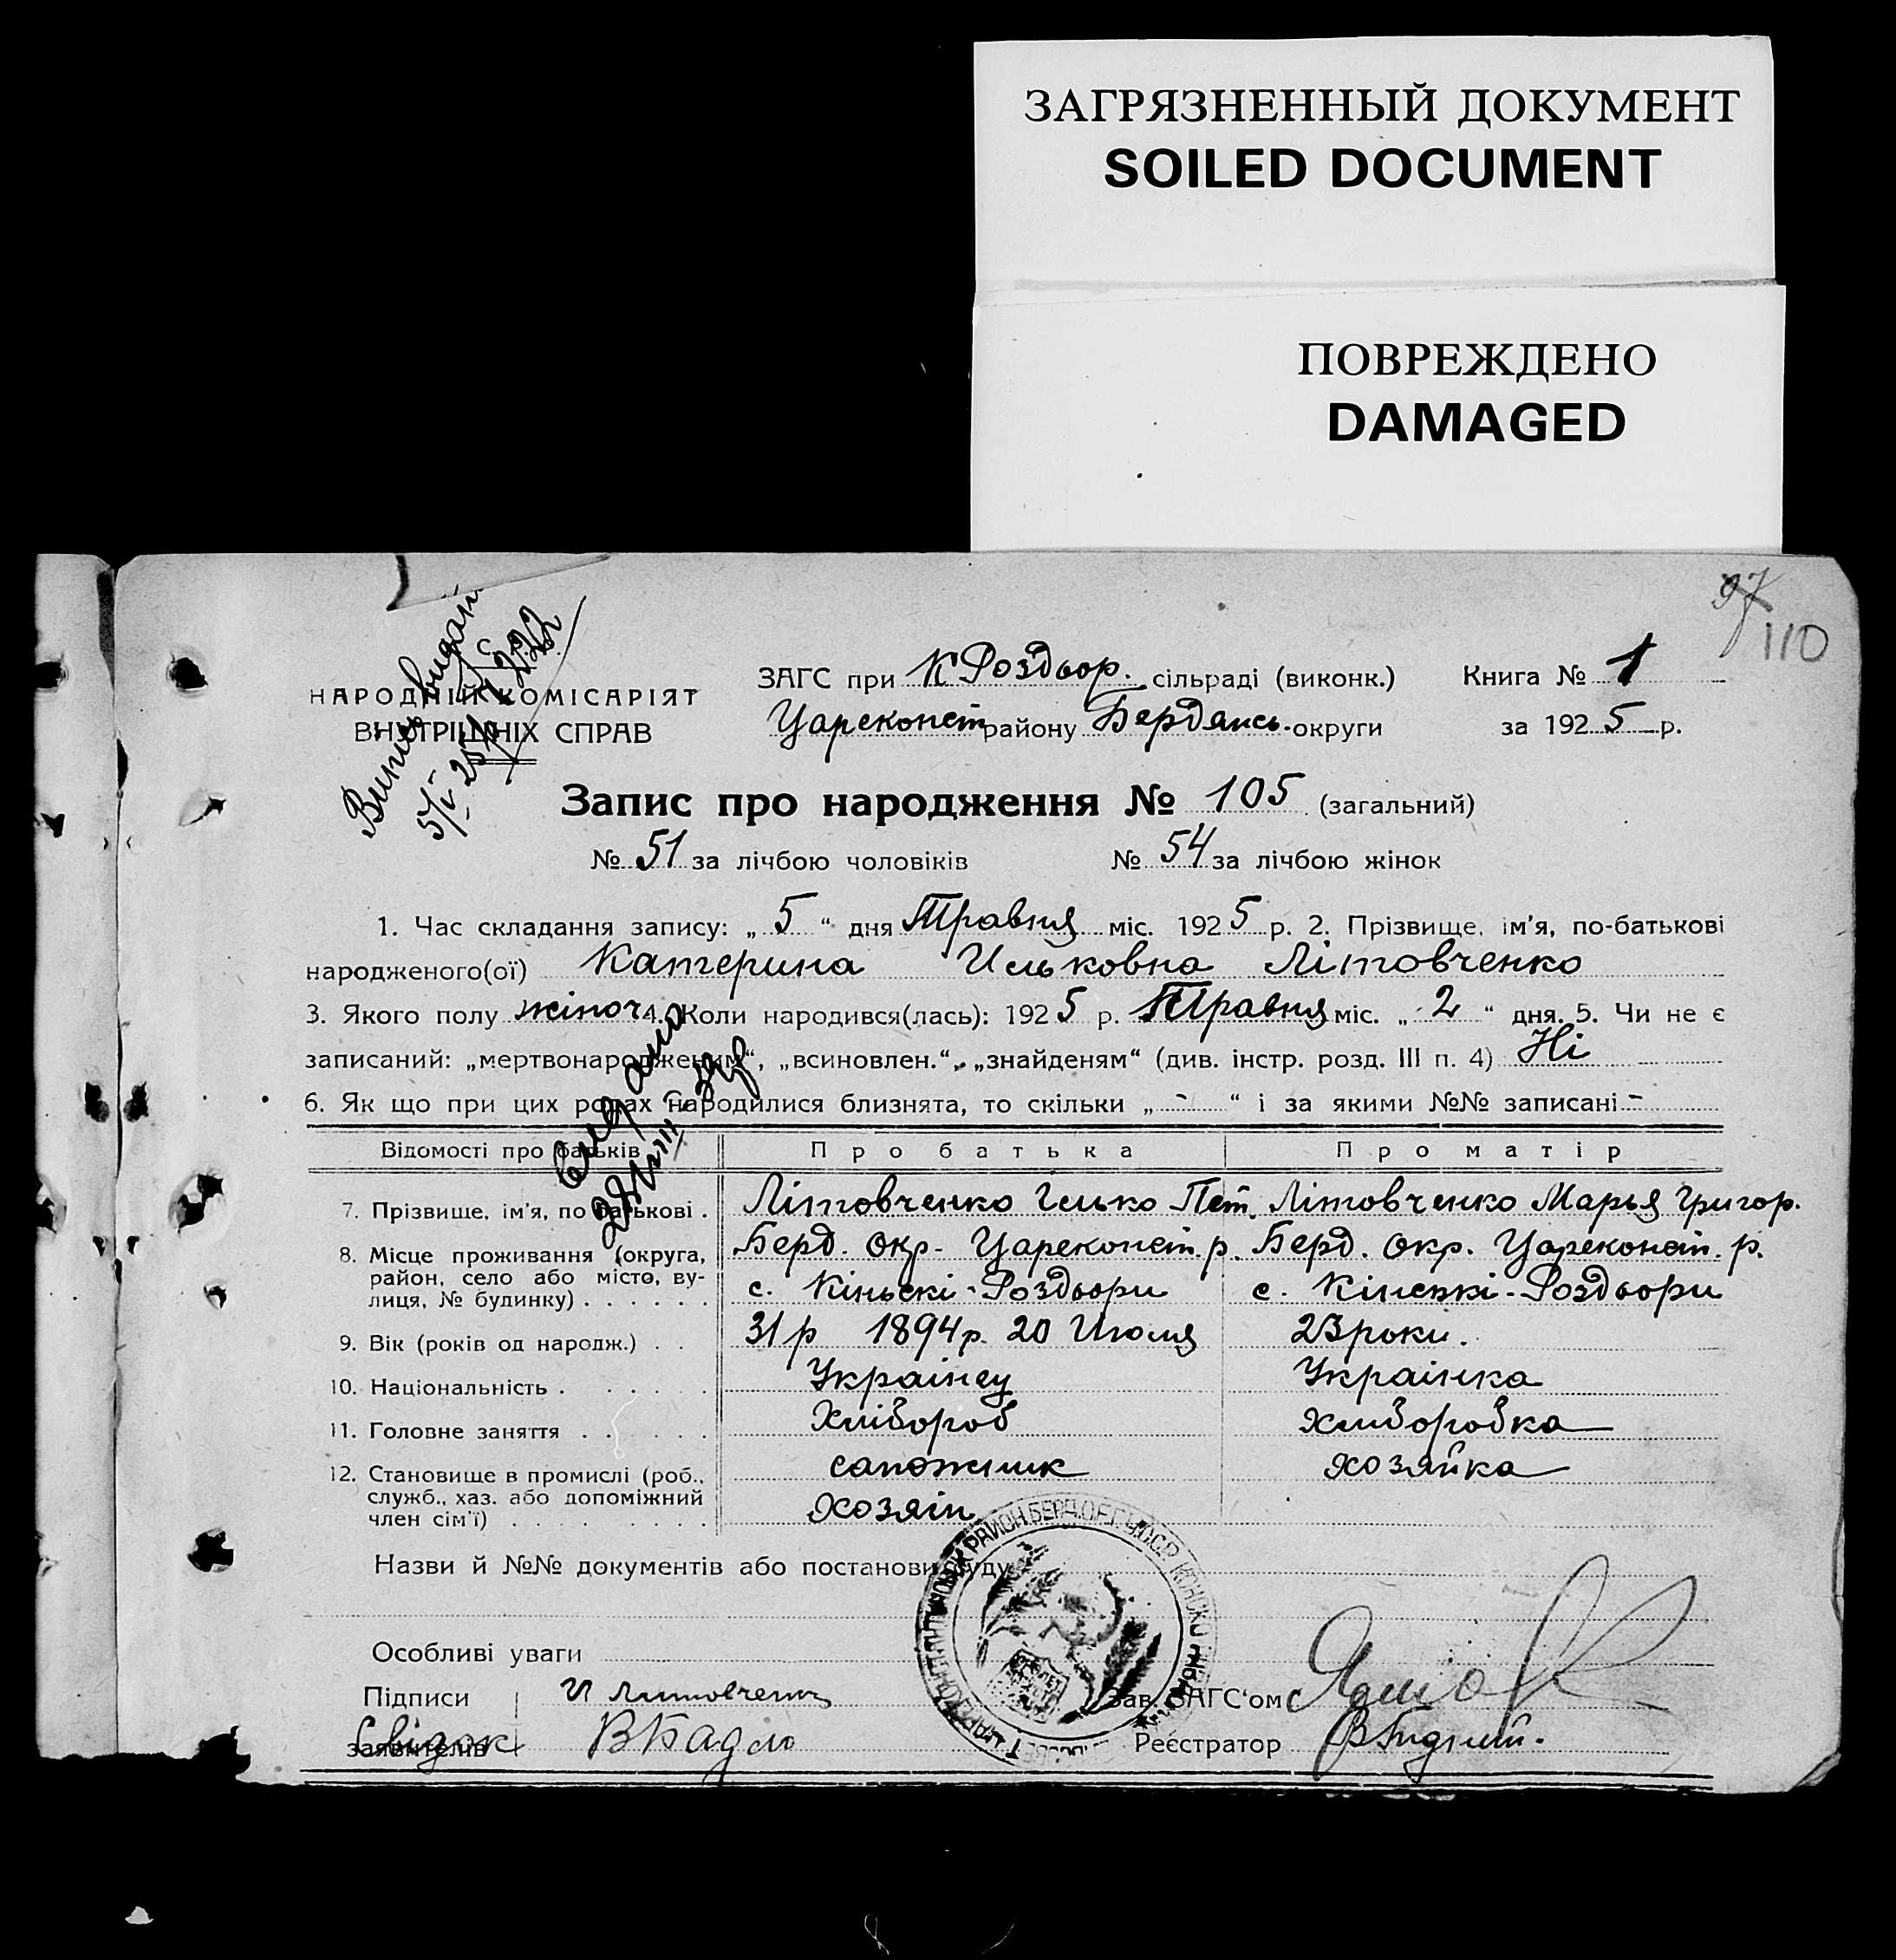 ЗАГРЯЗНЕННЫЙ ДОКУМЕНТ
SOILED DOCUMENT
ПОВРЕЖДЕНО
DAMAGED
97
110
НАРОДНІЙ КОМІСАРІЯТ
ВНУТРІШНІХ СПРАВ
ЗАГС при К Роздвор. сільраді (виконк.) Книга № 1
Цареконст району Бердянсь. округи за 1925 р.
Запис про народження № 105 (загальний)
№ 51 за лічбою чоловіків № 54 за лічбою жінок
1. Час складання запису: „ 5 “ дня Травня міс. 1925 р. 2. Прізвище, ім'я, по-батькові
народженого(ої) Катерина Ильковна Літовченко
3. Якого полу жіноч 4. Коли народився(лась): 1925 р. Травня міс. „ 2 “ дня. 5. Чи не є
записаний: „мертвонародженим“, „всиновлен.“, „знайденям“ (див. інстр. розд. III п. 4) Ні
6. Як що при цих родах народилися близнята, то скільки „ - “ і за якими №№ записані -
Відомості про батьків Про батька Про матір
7. Прізвище, ім'я, по батькові . Літовченко Ілько Пет. Літовченко Марья Григор.
8. Місце проживання (округа, Берд. окр. Цареконст. р. Берд. окр. Цареконст. р.
район, село або місто, ву- с. Кіньскі-Роздори с. Кінскі-Роздори
лиця, № будинку) . . . . . .
9. Вік (років од народж.) . . 31 р 1894 р. 20 Июля 23 роки.
10. Національність . . . . . Українец Українка
11. Головне заняття . . . . . Хлібороб хліборобка
12. Становище в промислі (роб., сапожник хозяйка
служб., хаз. або допоміжний хозяїн
член сім'ї) . . . . . . . . .
Назви й №№ документів або постанови суду
Особливі уваги
Підписи И Литовченко Зав. ЗАГС'ом
заявителів Свідок В Бадло Реєстратор